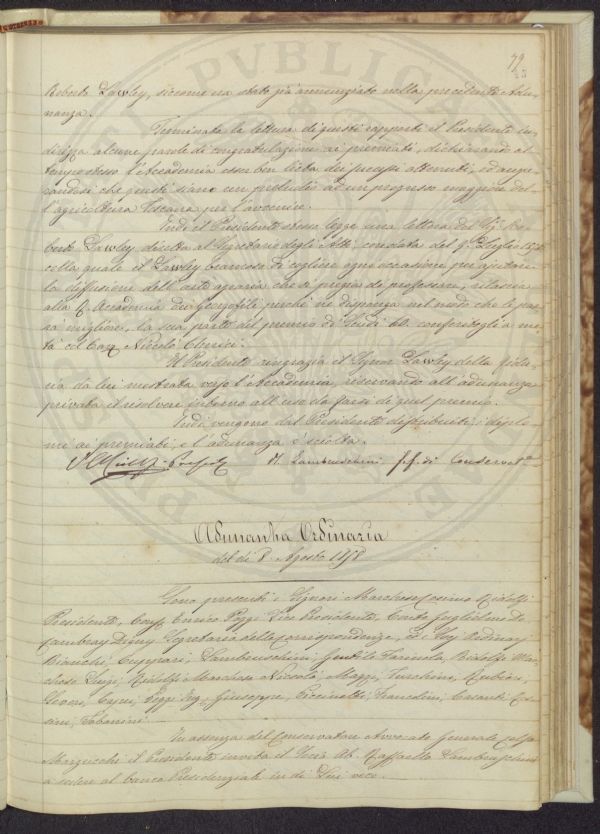 79
Roberto Lawley, siccome era stato già annunziato nella precedente Adu-
nanza.
Terminata la lettura di questi rapporti il Presidente in-
dirizza alcune parole di congratulazione ai premiati, dichiarando al
tempo stesso l'Accademia esser ben lieta dei successi ottenuti, ed augu-
randosi che questi siano un preludio ad un progresso maggiore del-
l'agricoltura Toscana per l'avvenire.
Indi il Presidente stesso legge una lettera del Sig. Ro-
berto Lawley diretta al Segretario degli Atti, in data del Luglio
colla quale il Lawley bramoso di cogliere ogni occasione per ajutare
la diffusione dell'arte agraria che si pregia di professare, rilascia
alla R. Accademia dei Georgofili perchè ne disponga nel modo che le par-
rà migliore, la sua parte del premio di Scudi 60. conferitogli a me-
tà col Cav. Niccolò
Il Presidente ringrazia il Signor Lawley della fidu-
cia da lui mostrata verso l'Accademia, riservando all'adunanza
privata il risolvere intorno all'uso da farsi di quel premio.
Indi vengono dal Presidente distribuiti i diplo-
mi ai premiati, e l'adunanza è sciolta.
R. Lambruschini f.f. di Conservat.
Adunanza Ordinaria
del dì 8. Agosto 1858
Sono presenti i Signori Marchese Cosimo Ridolfi
Presidente, Enrico Poggi Vice Presidente, Conte Guglielmo De
Cambray Digny Segretario delle Corrispondenze, ed i Sogj Ordinarj
Bianchi, Lambruschini, Gentile Farinola, Ridolfi Mar-
chese Luigi, Ridolfi Marchese Niccolò, Mazzi, Turchini, Rubieri,
Poggi Ing. Giuseppe, Franchini, Casanti

In assenza del Conservatore Avvocato Generale
Marzucchi il Presidente invita il Socio Ab. Raffaello Lambruschini
a sedere al banco Presidenziale in di Lui vece.